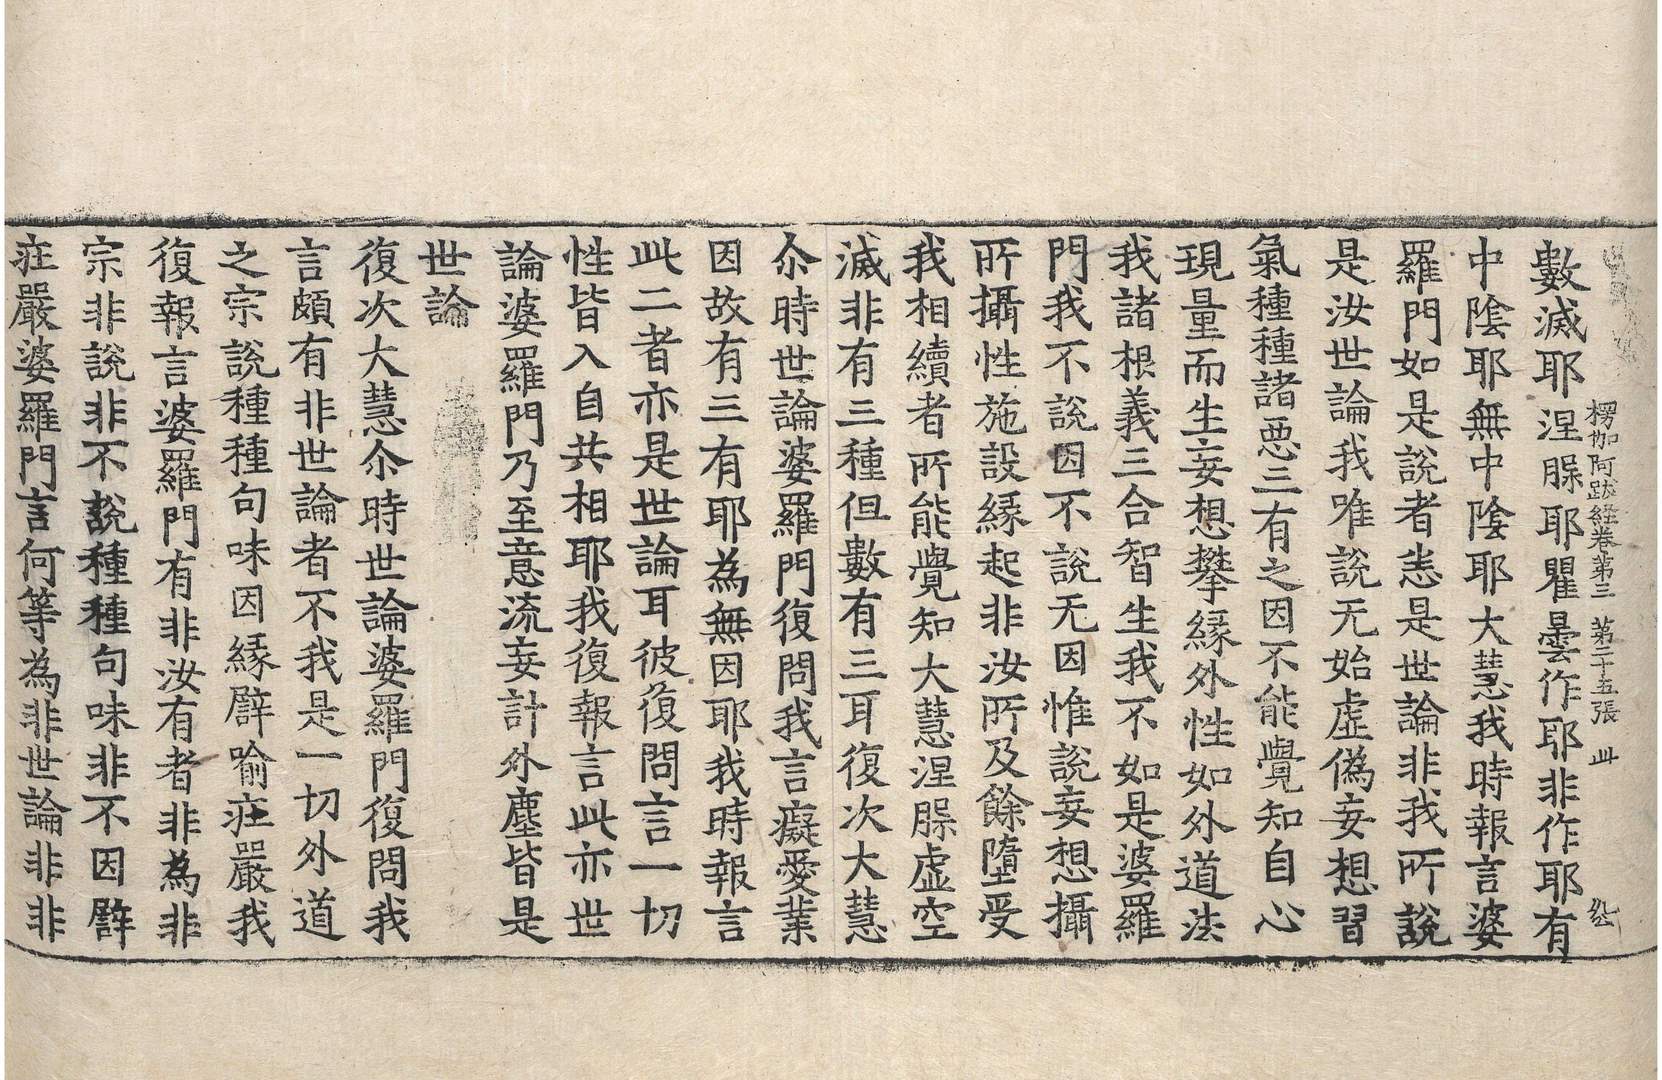 楞伽阿跋經卷第三 第二十五張 此
數滅耶涅槃耶瞿曇作耶非作耶有
中陰耶無中陰耶大慧我時報言婆
羅門如是說者悉是世論非我所說
是汝世論我唯說无始虛偽妄想習
氣種種諸惡三有之因不能覺知自心
現量而生妄想攀緣外性如外道法
我諸根義三合智生我不如是婆羅
門我不說因不說无因惟說妄想攝
所攝性施設緣起非汝所及餘墮受
我相續者所能覺知大慧涅槃虛空
滅非有三種但數有三耳復次大慧
尒時世論婆羅門復問我言癡愛業
因故有三有耶為無因耶我時報言
此二者亦是世論耳彼復問言一切
性皆入自共相耶我復報言此亦世
論婆羅門乃至意流妄計外塵皆是
世論
復次大慧尒時世論婆羅門復問我
言頗有非世論者不我是一切外道
之宗說種種句味因緣譬喻莊嚴我
復報言婆羅門有非汝有者非為非
宗非說非不說種種句味非不因譬
莊嚴婆羅門言何等為非世論非非